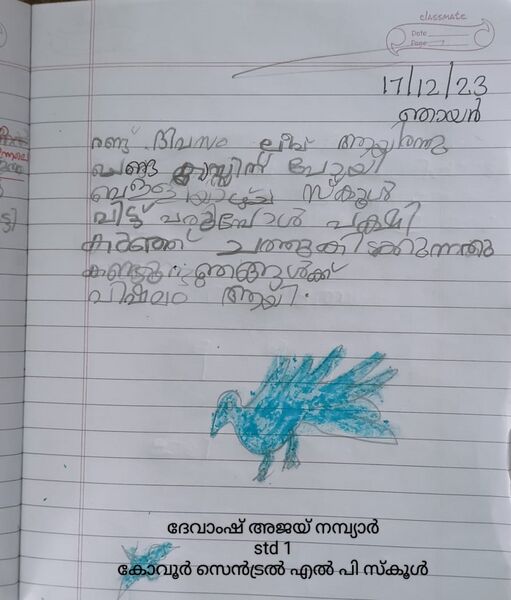 classmate
Date
Page
17/12/23
ഞായർ
രണ്ടു ദിവസം ലീവ് ആയിരുന്നു
ചെണ്ട ക്ലാസ്സിന് പോയി
വെള്ളിയാഴ്ച സ്കൂൾ
വിട്ട് വരുമ്പോൾ പക്ഷി
കരിഞ്ഞ് ചത്തുകിടക്കുന്നതു
കണ്ടു ഞങ്ങൾക്ക്
വിഷമം ആയി.
ദേവാംഷ് അജയ് നമ്പ്യാർ
std 1
കോവൂർ സെൻട്രൽ എൽ പി സ്കൂൾ